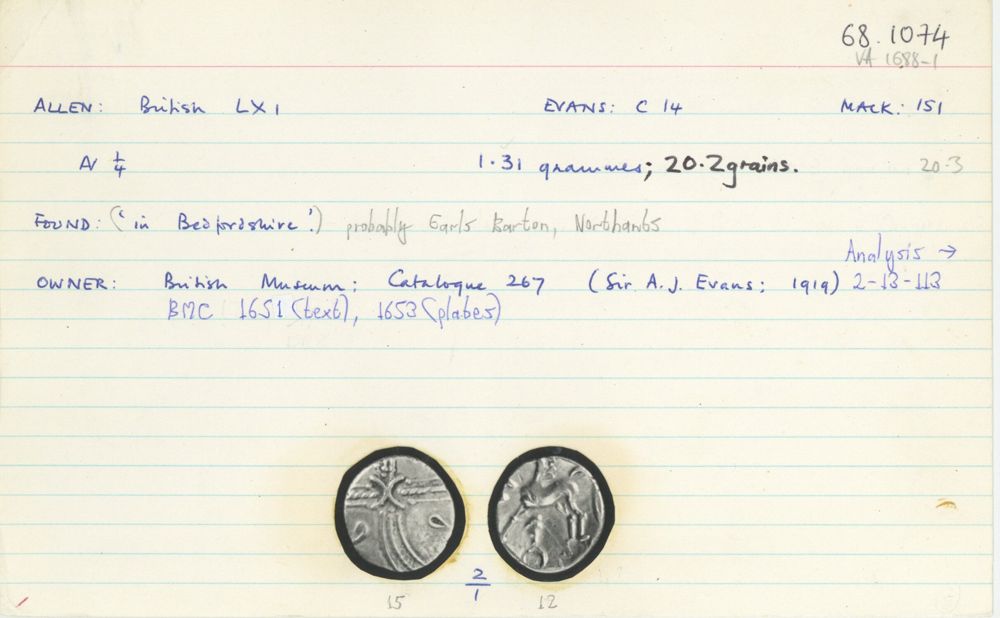 68.1074
VA 1688-1
ALLEN: British LX 1 EVANS: C 14 MACK: 151
AV 1/4 1.31 grammes; 20.2 grains. 20.3
FOUND: ('in Bedfordshire'.) probably Earls Barton, Northants
Analysis →
OWNER: British Museum; Catalogue 267 (Sir A.J. Evans; 1919) 2-13-113
BMC 1651 (text), 1653 (plates)
2/1
15 12